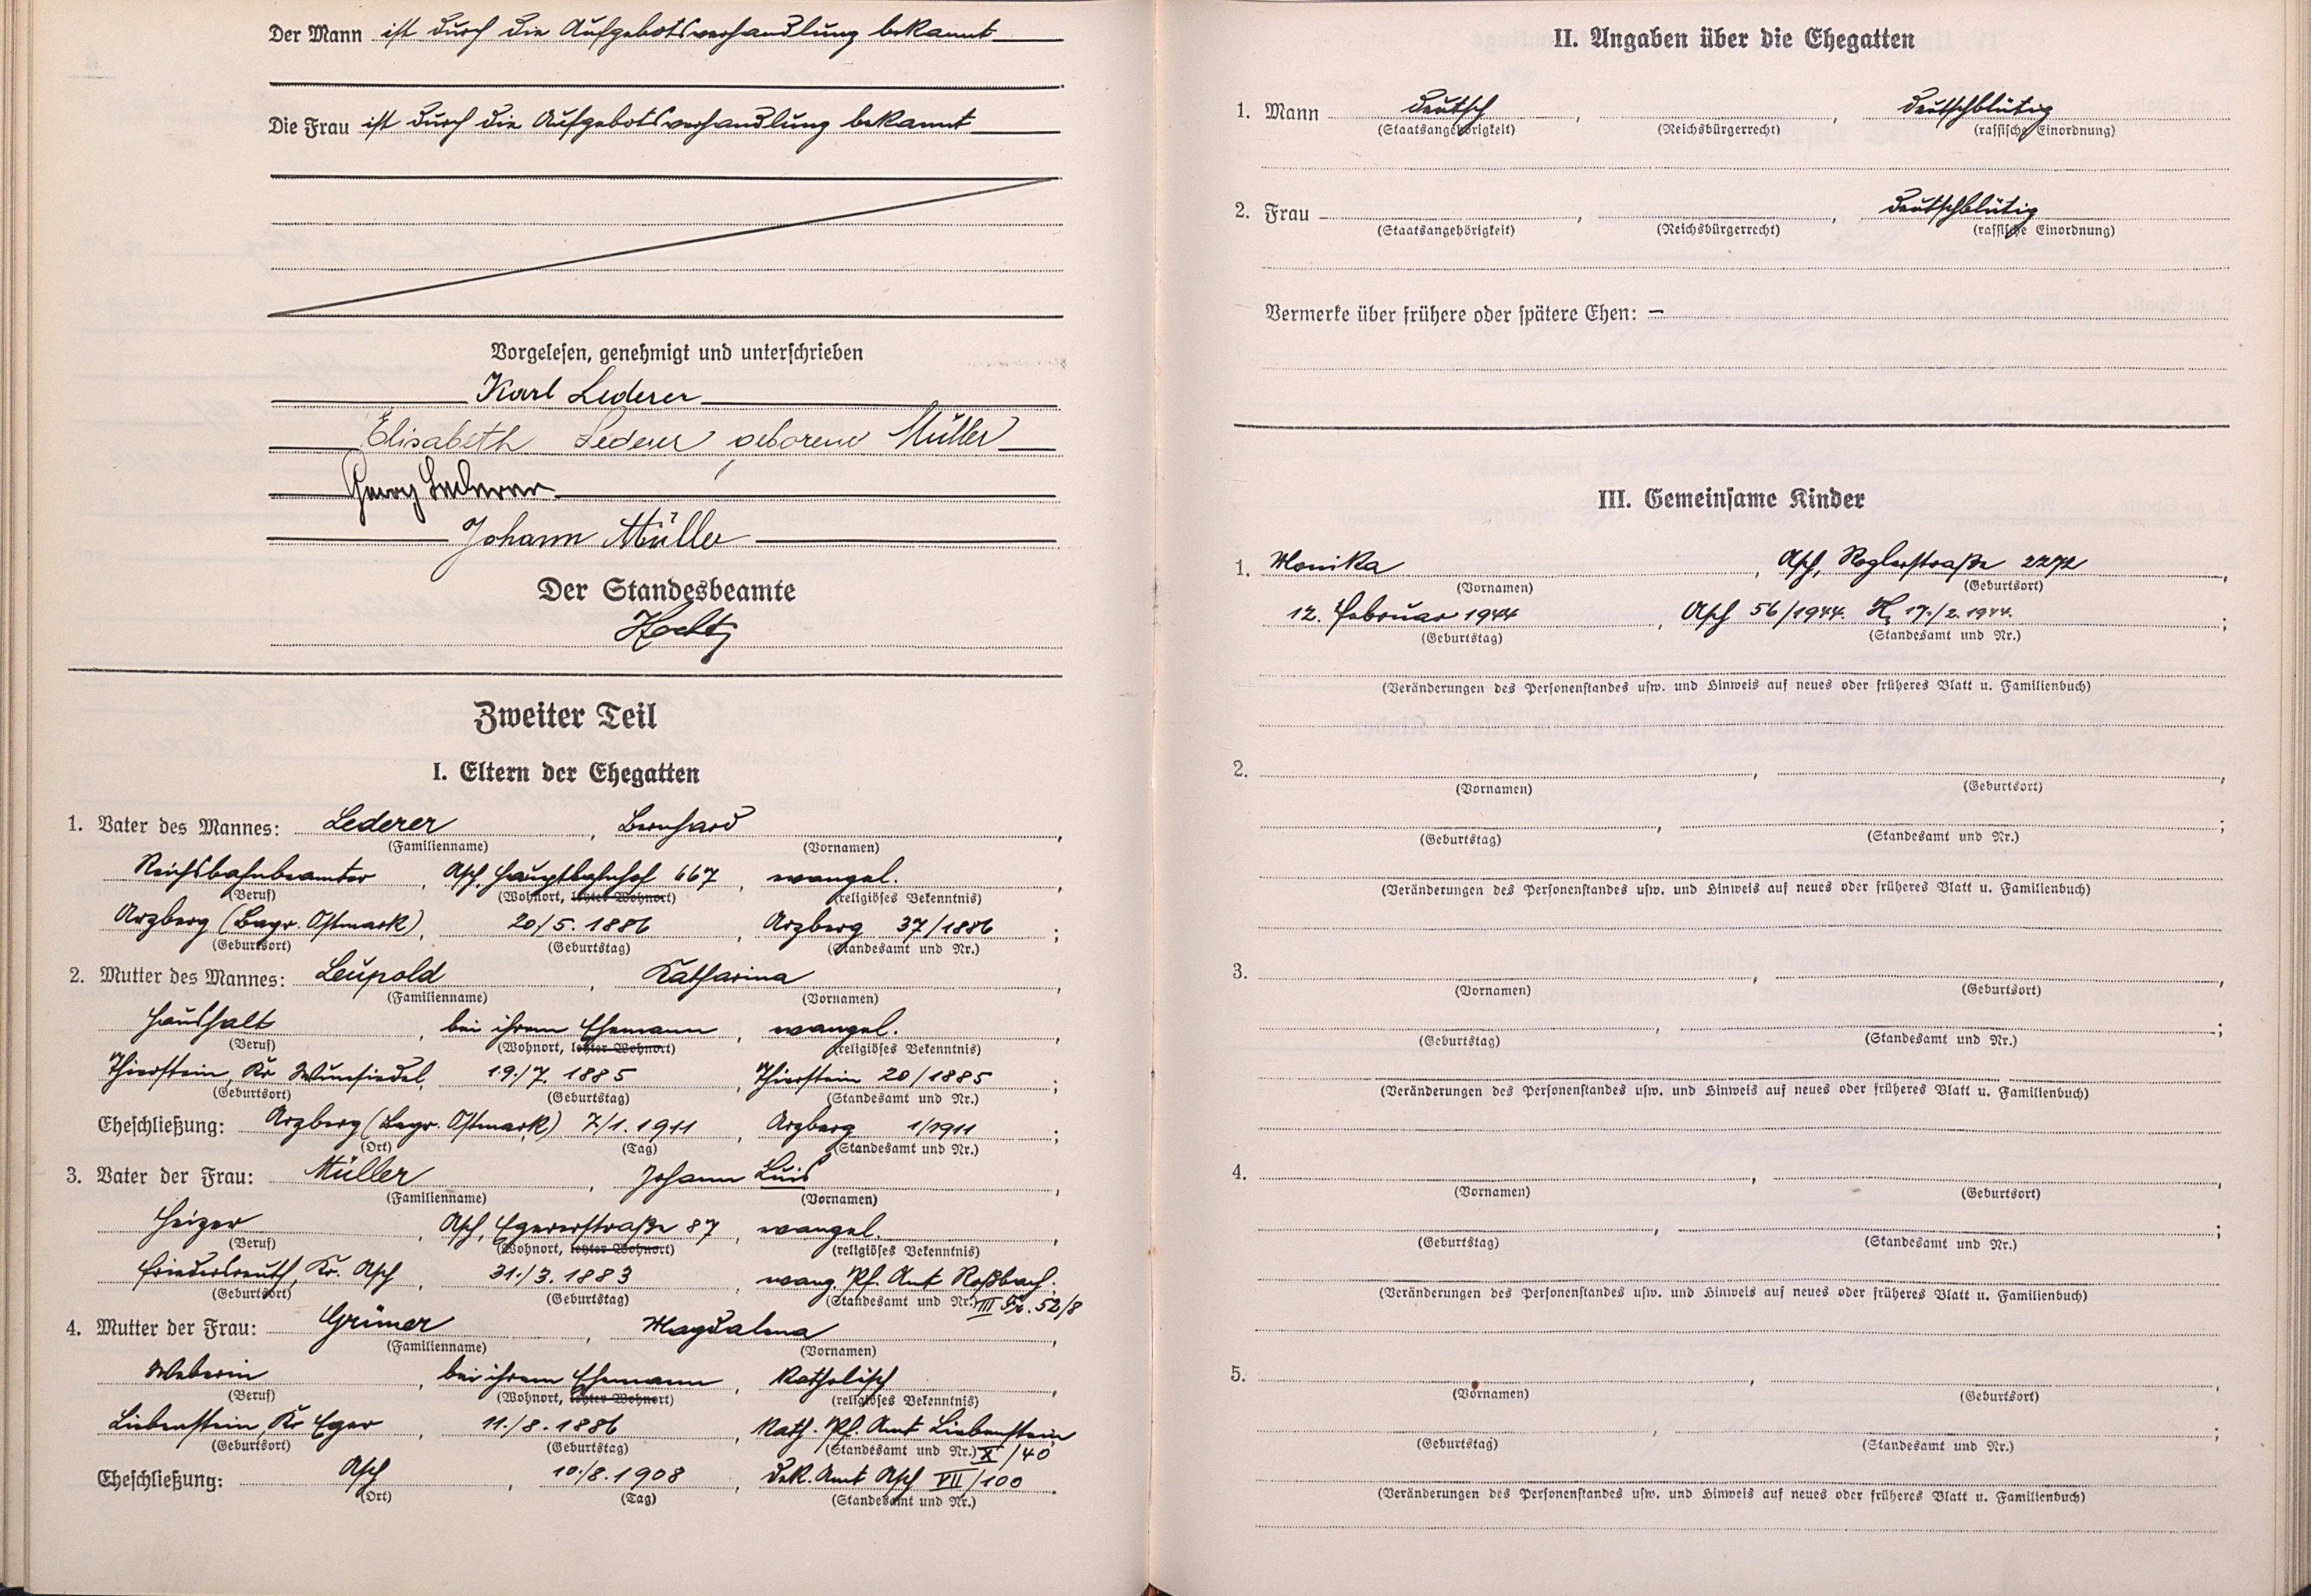 Der Mann ist durch die Aufgebotsverhandlung bekannt
Die Frau ist durch die Aufgebotsverhandlung bekannt
Vorgelesen, genehmigt und unterschrieben
Karl Lederer
Elisabeth Lederer geborene Müller
Georg Lederer
Johann Müller
Der Standesbeamte
Zweiter Teil
I. Eltern der Ehegatten
1. Vater des Mannes: Lederer, Bernhard,
(Familienname) (Vornamen)
Reichsbahnbeamter, Asch, Hauptbahnhof 667, evangel.,
(Beruf) (Wohnort, letzter Wohnort) (religiöses Bekenntnis)
Arzberg (Bayr. Ostmark), 20/5. 1886, Arzberg 37/1886;
(Geburtsort) (Geburtstag) (Standesamt und Nr.)
2. Mutter des Mannes: Leupold, Katharina,
(Familienname) (Vornamen)
Haushalt, bei ihrem Ehemann, evangel.,
(Beruf) (Wohnort, letzter Wohnort) (religiöses Bekenntnis)
Thierstein, Kr. Wunsiedel, 19./7. 1885, Thierstein 20/1885;
(Geburtsort) (Geburtstag) (Standesamt und Nr.)
Eheschließung: Arzberg (Bayr. Ostmark) 7/1. 1911, Arzberg 1/1911;
(Ort) (Tag) (Standesamt und Nr.)
3. Vater der Frau: Müller, Johann Luis,
(Familienname) (Vornamen)
Heizer, Asch, Egererstraße 87, evangel.,
(Beruf) (Wohnort, letzter Wohnort) (religiöses Bekenntnis)
Friedersreuth, Kr. Asch, 31./3. 1883, evang. Pf. Amt Roßbach;
(Geburtsort) (Geburtstag) (Standesamt und Nr.) III 52/8
4. Mutter der Frau: Grüner, Magdalena,
(Familienname) (Vornamen)
Weberin, bei ihrem Ehemann, katholisch,
(Beruf) (Wohnort, letzter Wohnort) (religiöses Bekenntnis)
Liebenstein, Kr. Eger, 11./8. 1886, Kath. Pf. Amt Liebenstein
(Geburtsort) (Geburtstag) (Standesamt und Nr.) X/40
Eheschließung: Asch, 10./8. 1908, Dek. Amt Asch VII/100.
(Ort) (Tag) (Standesamt und Nr.)
II. Angaben über die Ehegatten
1. Mann deutsch, , deutschblütig
(Staatsangehörigkeit) (Reichsbürgerrecht) (rassische Einordnung)
2. Frau , , deutschblütig
(Staatsangehörigkeit) (Reichsbürgerrecht) (rassische Einordnung)
Vermerke über frühere oder spätere Ehen: —
III. Gemeinsame Kinder
1. Monika, Asch, Roglerstraße 2272,
(Vornamen) (Geburtsort)
12. Februar 1944, Asch 56/1944. 17./2. 1944.;
(Geburtstag) (Standesamt und Nr.)
(Veränderungen des Personenstandes usw. und Hinweis auf neues oder früheres Blatt u. Familienbuch)
2. , ,
(Vornamen) (Geburtsort)
, ;
(Geburtstag) (Standesamt und Nr.)
(Veränderungen des Personenstandes usw. und Hinweis auf neues oder früheres Blatt u. Familienbuch)
3. , ,
(Vornamen) (Geburtsort)
, ;
(Geburtstag) (Standesamt und Nr.)
(Veränderungen des Personenstandes usw. und Hinweis auf neues oder früheres Blatt u. Familienbuch)
4. , ,
(Vornamen) (Geburtsort)
, ;
(Geburtstag) (Standesamt und Nr.)
(Veränderungen des Personenstandes usw. und Hinweis auf neues oder früheres Blatt u. Familienbuch)
5. , ,
(Vornamen) (Geburtsort)
, ;
(Geburtstag) (Standesamt und Nr.)
(Veränderungen des Personenstandes usw. und Hinweis auf neues oder früheres Blatt u. Familienbuch)